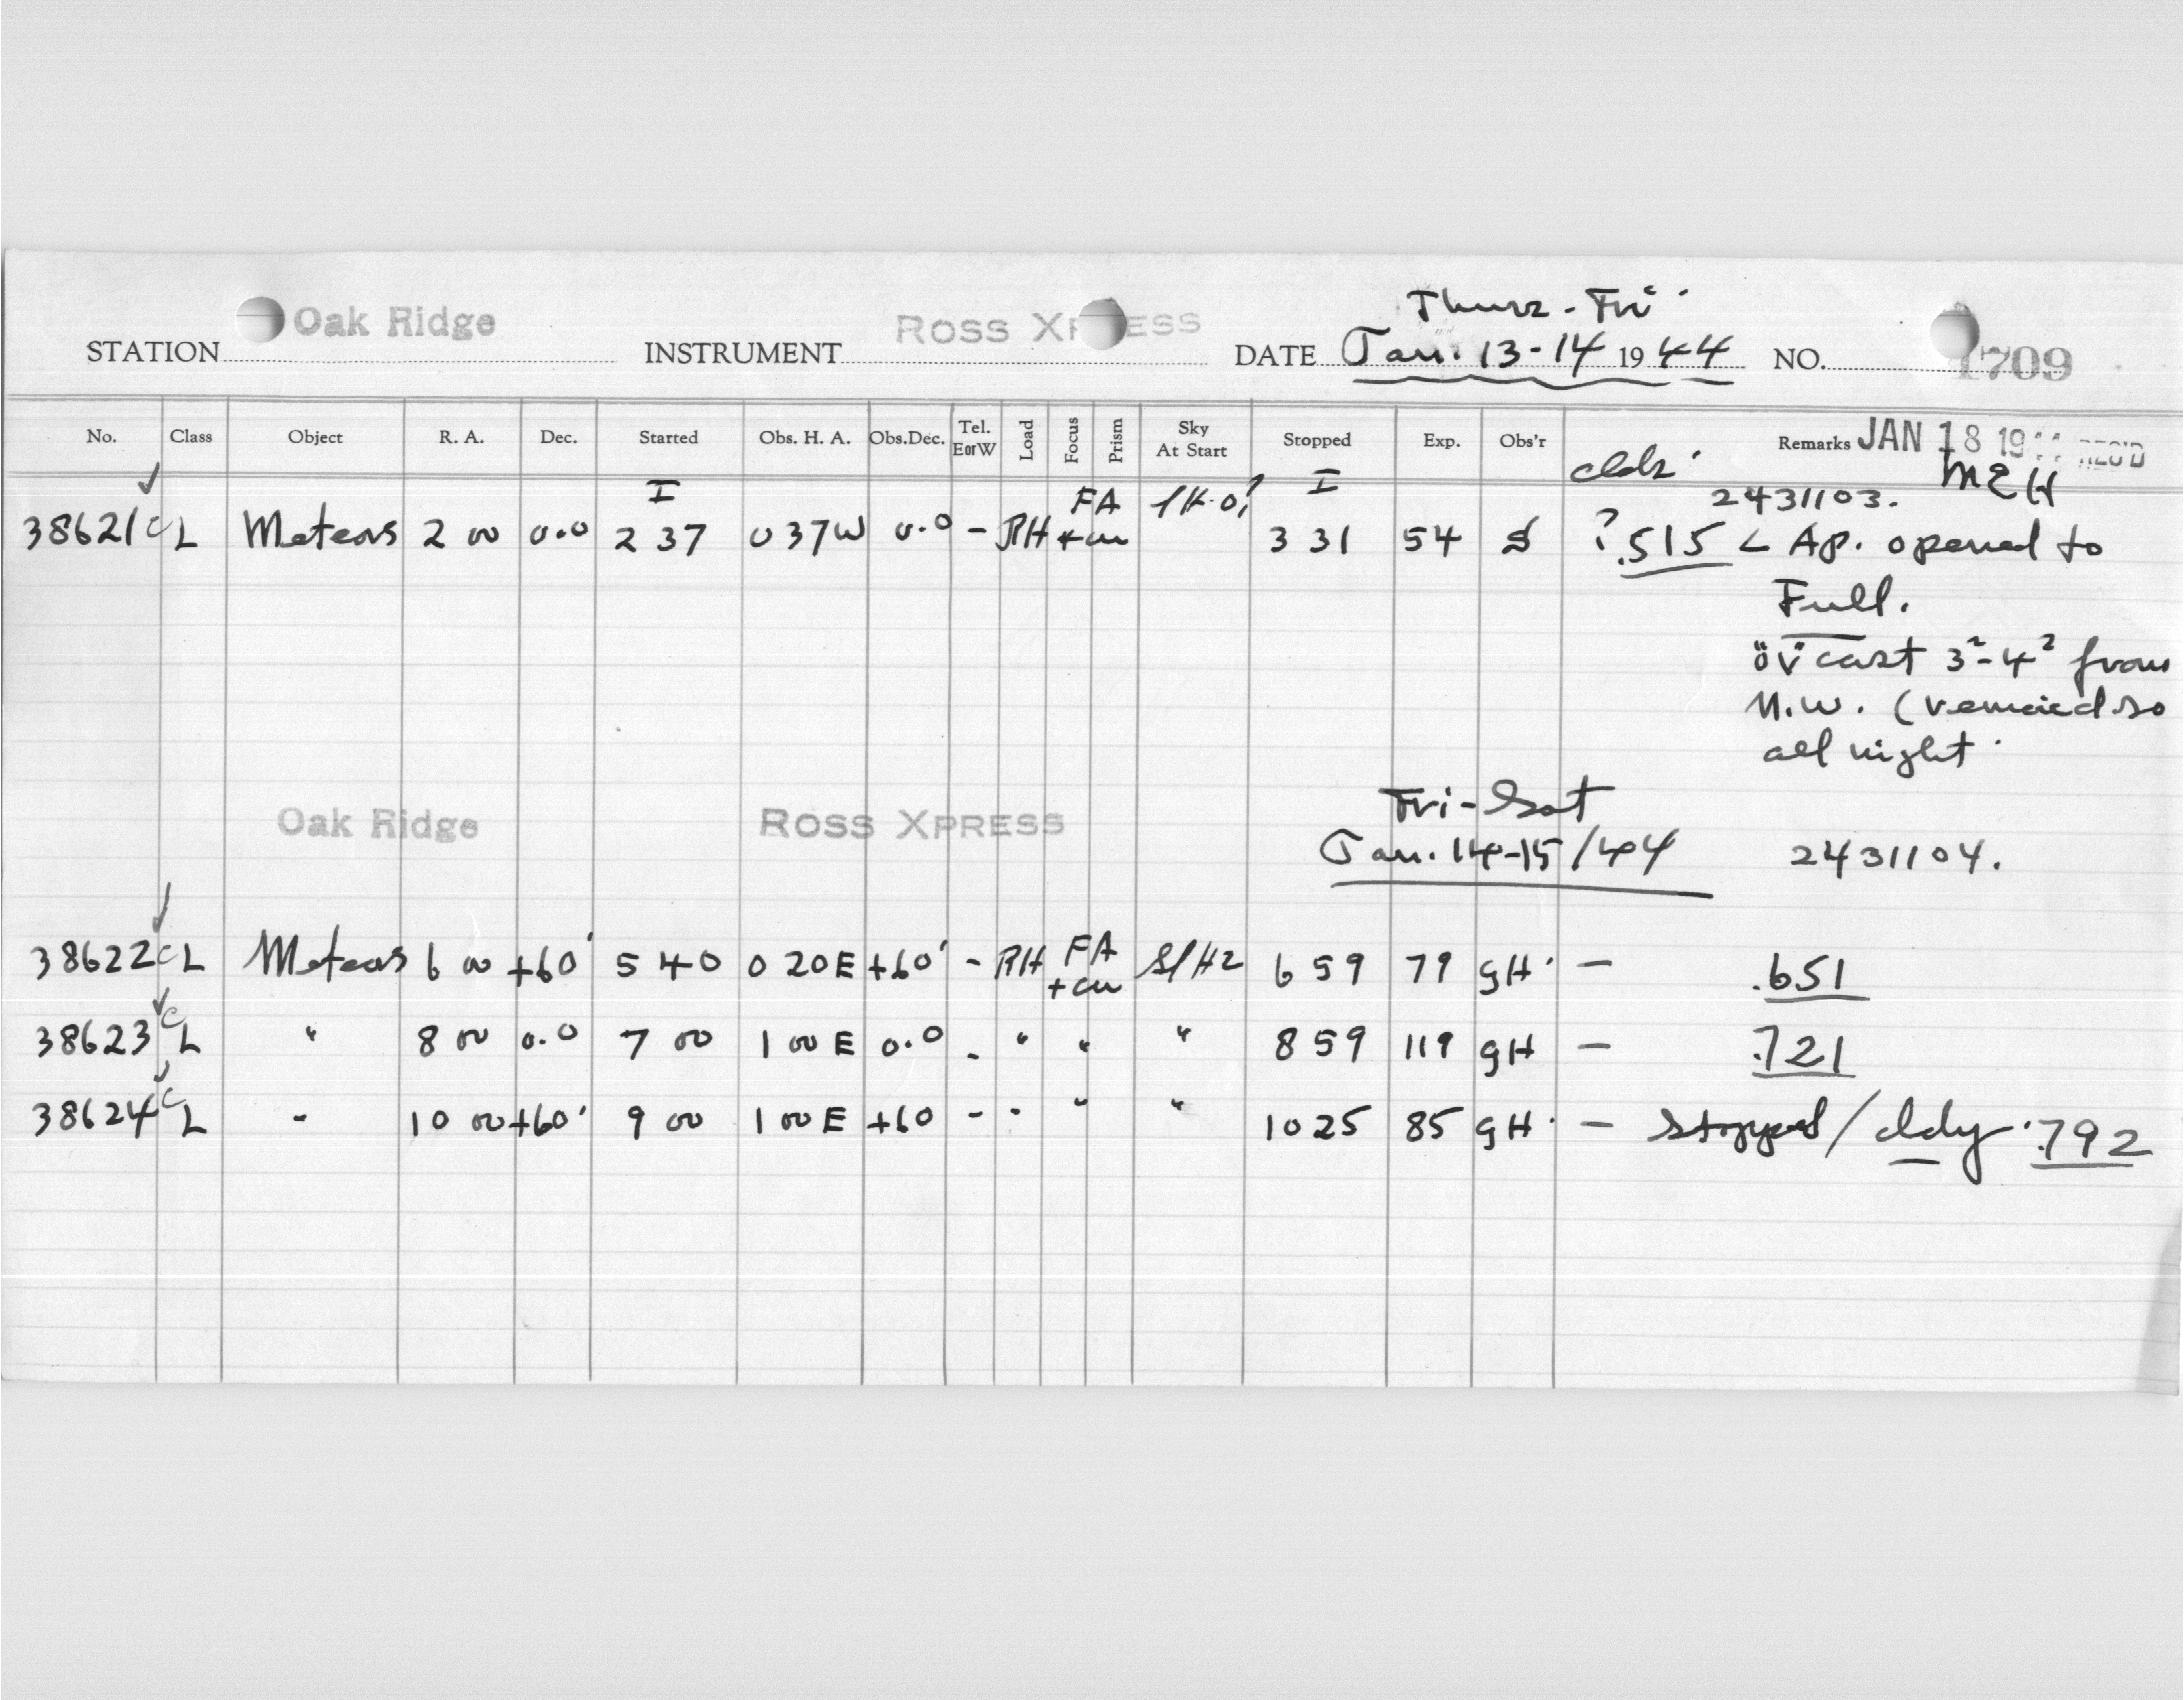 Thurs - Fri
STATION Oak Ridge INSTRUMENT ROSS XPRESS DATE Jan. 13-14 1944 NO. 1709
No. Class Object R. A. Dec. Started Obs. H. A. Obs.Dec. Tel. E or W Load Focus Prism Sky At Start Stopped Exp. Obs'r Remarks JAN 18 19 REC'D
I I clds. 2431103. MEH
38621 C L Meteors 2 00 0.0 2 37 0 37W 0.0 - RH FA 3 31 54 S ? .515 < Ap. opened to
Full.
ov'cast 3²-4² from
N.W. (remaied so
all night.
Oak Ridge ROSS XPRESS Fri-Sat
Jan. 14-15/44 2431104.
38622 C L Meteors 6 00 +60' 5 40 0 20E +60' - RH FA S/H2 6 59 79 gH. - .651
38623 C L " 8 00 0.0 7 00 1 00 E 0.0 - " " " 8 59 119 gH - .721
38624 C L " 10 00 +60' 9 00 1 00 E +60 - " " " 10 25 85 gH. - stopped/cldy .792